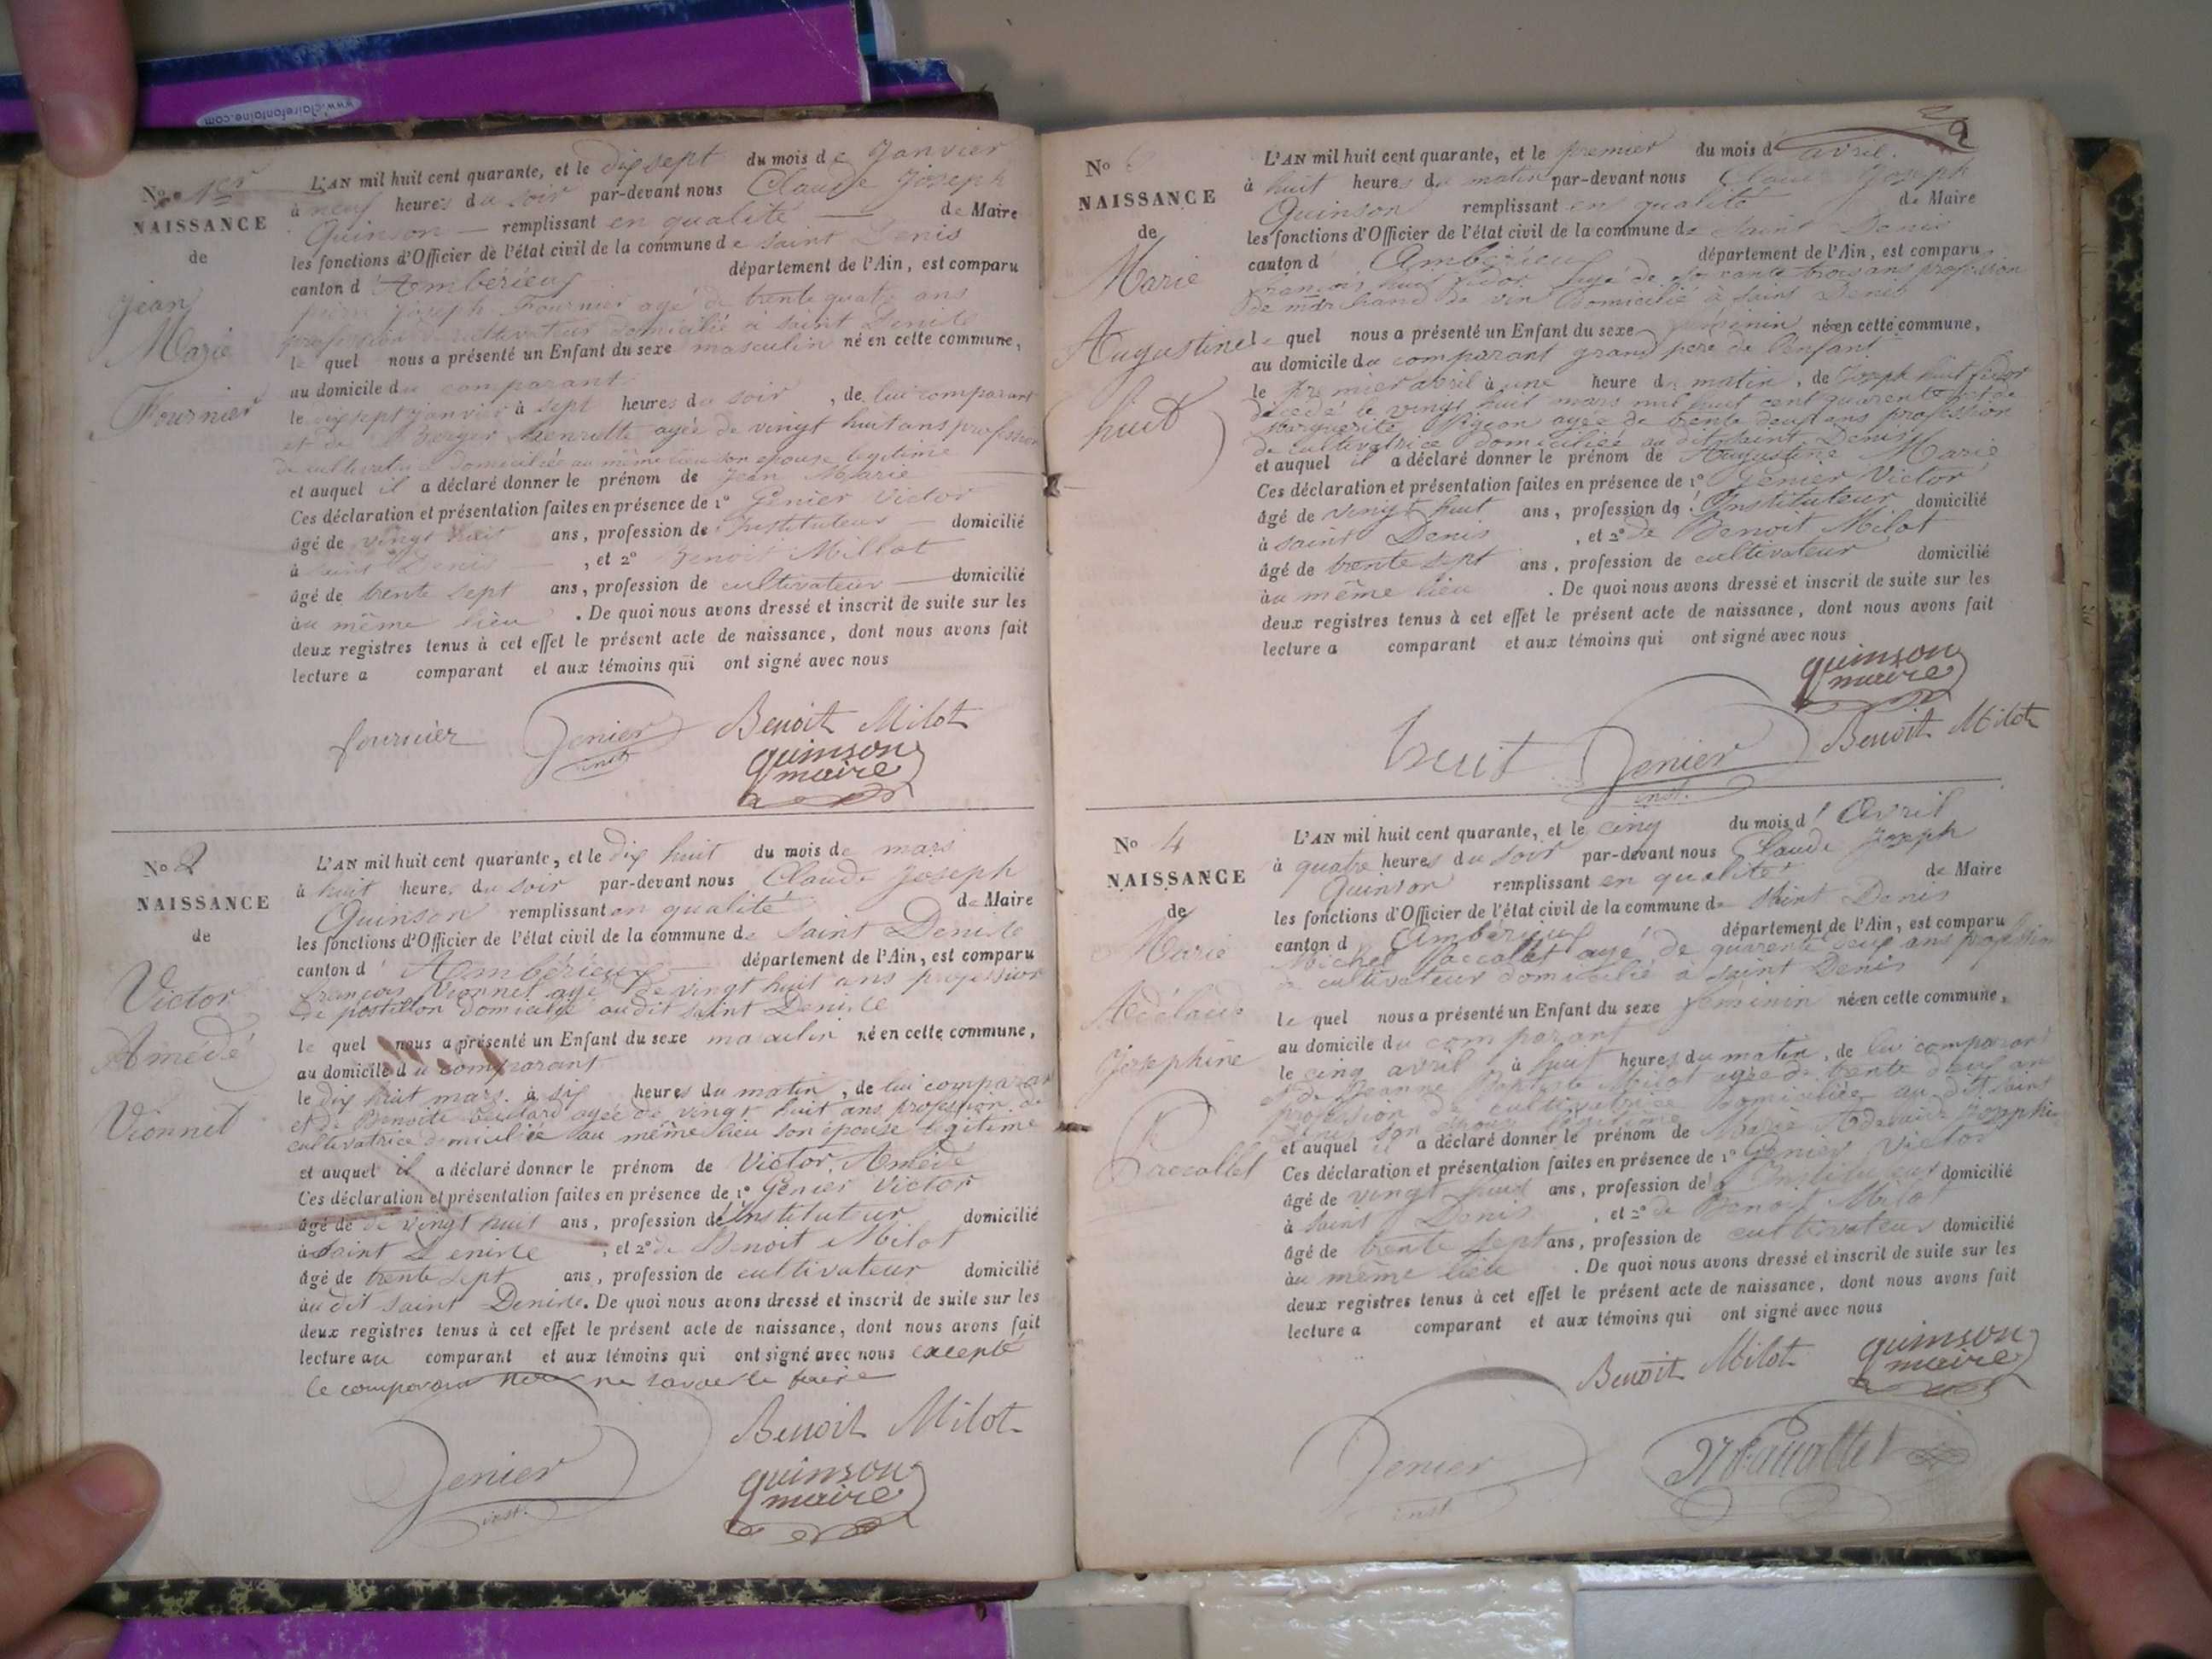 www.clairefontaine.com
No 1er
NAISSANCE
de
Jean
Marie
Fournier
L'AN mil huit cent quarante, et le dix sept du mois de Janvier
à neuf heures du soir par-devant nous Claude Joseph
Quinson — remplissant en qualité — de Maire
les fonctions d'Officier de l'état civil de la commune de saint Denis
canton d'Ambérieux département de l'Ain, est comparu
pierre Joseph Fournier agé de trente quatre ans
profession de cultivateur domicilié à saint Denis le
le quel nous a présenté un Enfant du sexe masculin né en cette commune,
au domicile du comparant
le dix sept janvier à sept heures du soir, de lui comparant
et de Berger henriette agée de vingt huit ans profession
de cultivatrice domiciliée au même lieu son epouse legitime
et auquel il a déclaré donner le prénom de Jean Marie
Ces déclaration et présentation faites en présence de 1º Genier Victor
âgé de vingt huit ans, profession de Instituteur — domicilié
à saint Denis —, et 2º Benoit Millot
âgé de trente sept ans, profession de cultivateur — domicilié
au même lieu. De quoi nous avons dressé et inscrit de suite sur les
deux registres tenus à cet effet le présent acte de naissance, dont nous avons fait
lecture a comparant et aux témoins qui ont signé avec nous
fournier Genier Benoit Milot
inst quinson
maire
No 2
NAISSANCE
de
Victor
Amédé
Vionnet
L'AN mil huit cent quarante, et le dix huit du mois de mars
à huit heures du soir par-devant nous Claude Joseph
Quinson remplissant en qualité de Maire
les fonctions d'Officier de l'état civil de la commune de Saint Denis le
canton d'Ambérieux — département de l'Ain, est comparu
françois Vionnet agé de vingt huit ans profession
de postillon domicilié audit saint Denis le
le quel nous a présenté un Enfant du sexe masculin né en cette commune,
au domicile du comparant
le dix huit mars à six heures du matin, de lui comparant
et de Benoite agée de vingt huit ans profession de
cultivatrice domiciliée au même lieu son épouse legitime
et auquel il a déclaré donner le prénom de Victor Amédé
Ces déclaration et présentation faites en présence de 1º Genier Victor
âgé de de vingt huit ans, profession de Instituteur domicilié
à saint Denis le, et 2º de Benoit Milot
âgé de trente sept ans, profession de cultivateur domicilié
au dit saint Denis le. De quoi nous avons dressé et inscrit de suite sur les
deux registres tenus à cet effet le présent acte de naissance, dont nous avons fait
lecture au comparant et aux témoins qui ont signé avec nous excepté
le comparant ne savoir le faire
Benoit Milot
Genier quinson
inst. maire
No
NAISSANCE
de
Marie
Augustine
huit
L'AN mil huit cent quarante, et le premier du mois d'avril
à huit heures du matin par-devant nous Claude Joseph
Quinson remplissant en qualité de Maire
les fonctions d'Officier de l'état civil de la commune de Saint Denis
canton d'Ambérieux département de l'Ain, est comparu
françois huit agé de soixante trois ans profession
de marchand de vin domicilié à saint Denis
le quel nous a présenté un Enfant du sexe féminin né en cette commune,
au domicile du comparant grand pere de l'enfant
le premier avril à une heure du matin, de Joseph huit
décédé le vingt huit mars mil huit cent quarante et de
Marguerite Pigeon agée de trente deux ans profession
de cultivatrice domiciliée au dit saint Denis
et auquel il a déclaré donner le prénom de Augustine Marie
Ces déclaration et présentation faites en présence de 1º Genier Victor
âgé de vingt huit ans, profession de Instituteur domicilié
à saint Denis, et 2º de Benoit Milot
âgé de trente sept ans, profession de cultivateur domicilié
au même lieu. De quoi nous avons dressé et inscrit de suite sur les
deux registres tenus à cet effet le présent acte de naissance, dont nous avons fait
lecture a comparant et aux témoins qui ont signé avec nous
quinson
maire
huit Genier Benoit Milot
inst.
No 4
NAISSANCE
de
Marie
Adélaide
Josephine
Paccallet
L'AN mil huit cent quarante, et le cinq du mois d'Avril
à quatre heures du soir par-devant nous Claude Joseph
Quinson remplissant en qualité de Maire
les fonctions d'Officier de l'état civil de la commune de Saint Denis
canton d'Ambérieux département de l'Ain, est comparu
Michel Paccallet agé de quarente neuf ans profession
de cultivateur domicilié à saint Denis
le quel nous a présenté un Enfant du sexe féminin né en cette commune,
au domicile du comparant
le cinq avril à huit heures du matin, de lui comparant
et de Jeanne Baptiste Milot agée de trente deux ans
profession de cultivatrice domiciliée au dit saint
Denis son épouse légitime
et auquel il a déclaré donner le prénom de Marie Adelaide Josephine
Ces déclaration et présentation faites en présence de 1º Genier Victor
âgé de vingt huit ans, profession de Instituteur domicilié
à saint Denis, et 2º de Benoit Milot
âgé de trente sept ans, profession de cultivateur domicilié
au même lieu. De quoi nous avons dressé et inscrit de suite sur les
deux registres tenus à cet effet le présent acte de naissance, dont nous avons fait
lecture a comparant et aux témoins qui ont signé avec nous
Benoit Milot quinson
maire
Genier
inst